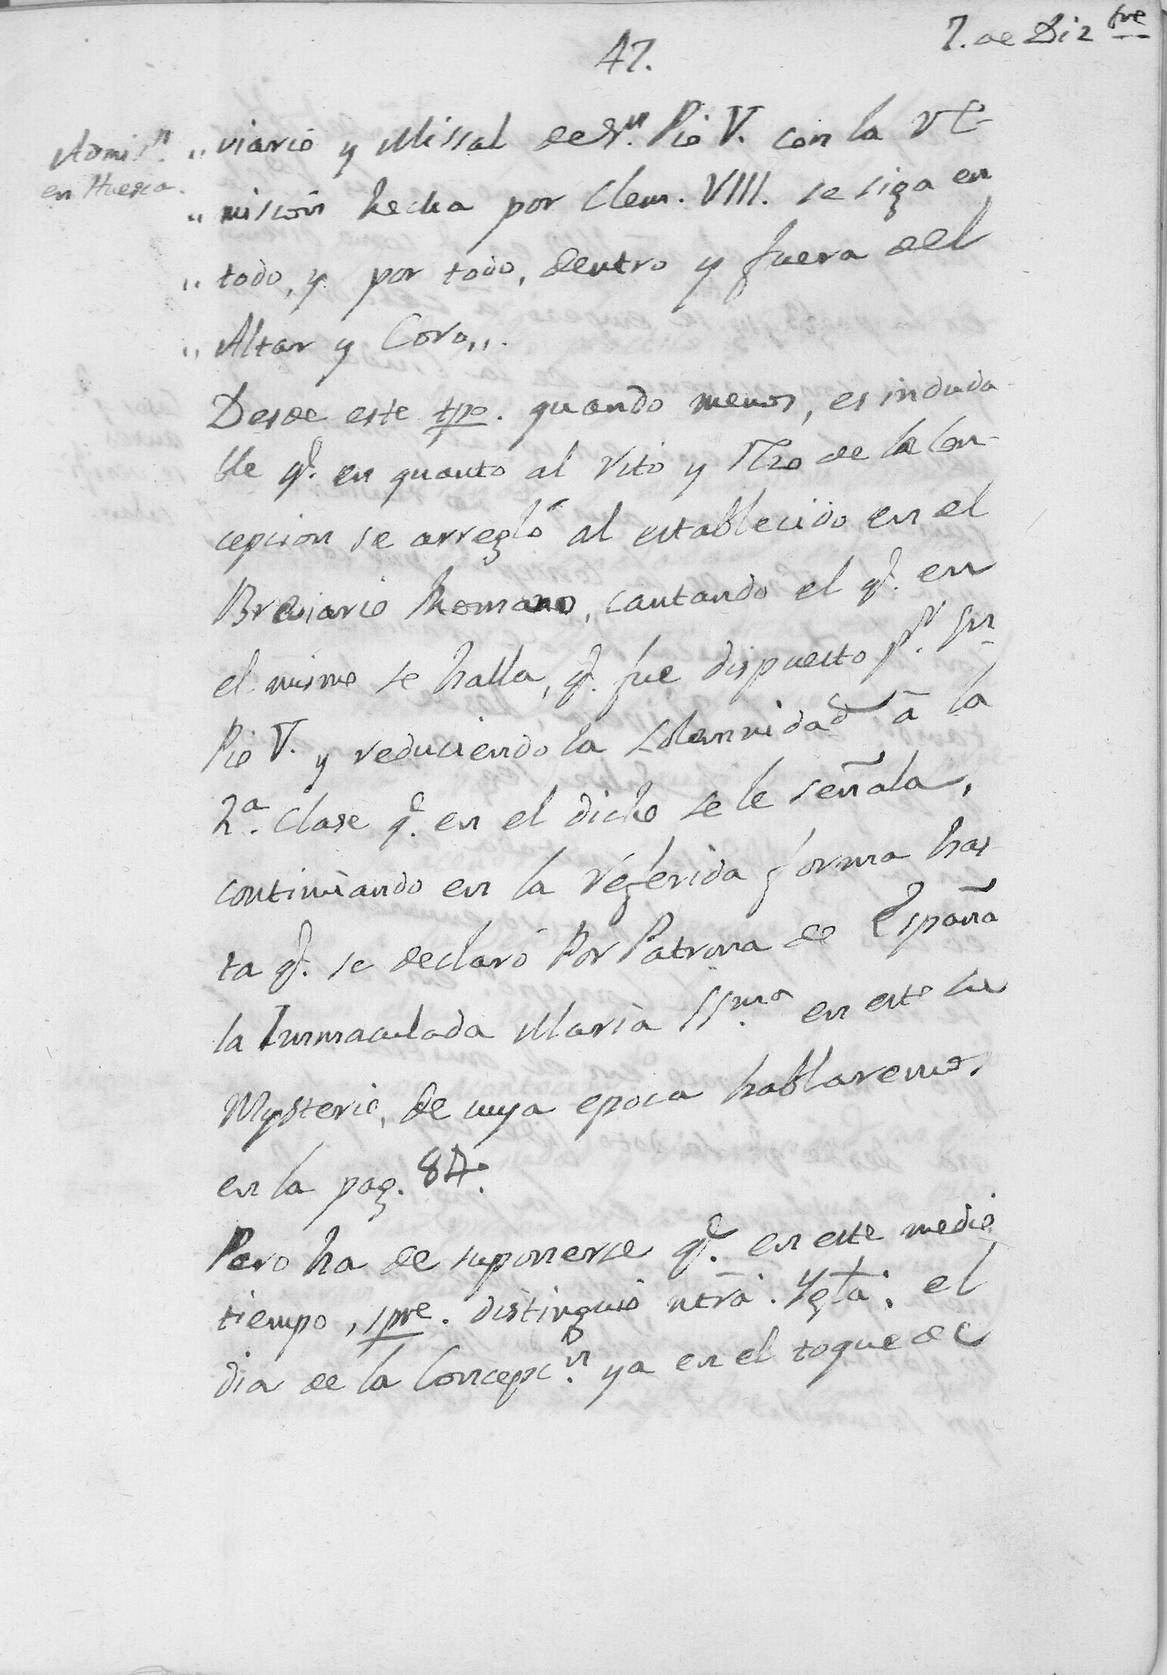 47.
7. de Dizbre
Admisn.
en Huesca.
„ viario y Missal de Sn. Pio V. con la re-
„ mision hecha por Clem. VIII. se siga en
„ todo, y por todo, dentro y fuera del
„ Altar y Coro„.
Desde este tpo. quando menos, es induda-
ble qe. en quanto al rito y rezo de la Con-
cepcion se arregló al establecido en el
Breviario Romano, cantando el qe. en
el mismo se halla, qe. fue dispuesto pr. Sn.
Pio V. y reduciendo la solemnidad à la
2a. Clase qe. en el dicho se le señala,
continuando en la referida forma has
ta qe. se declaró Por Patrona de España
la Immaculada Maria SSma. en este su
Mysterio, de cuya epoca hablaremos
en la pag. 84.
Pero ha de suponerse qe. en este medio
tiempo, spre. distinguió ntra. Ygla. el
dia de la Concepcn. ya en el toque de